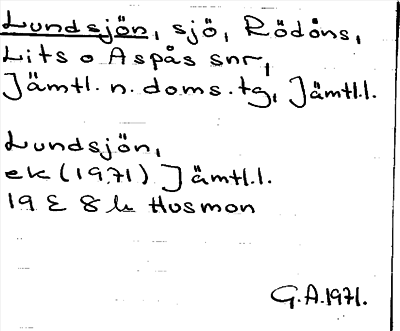 Lundsjön, sjö, Rödöns,
Lits o Aspås snr,
Jämtl. n. doms. tg, Jämtl.l.
Lundsjön,
ek (1971) Jämtl.l.
19 E 8 h Husmon
G.A. 1971.